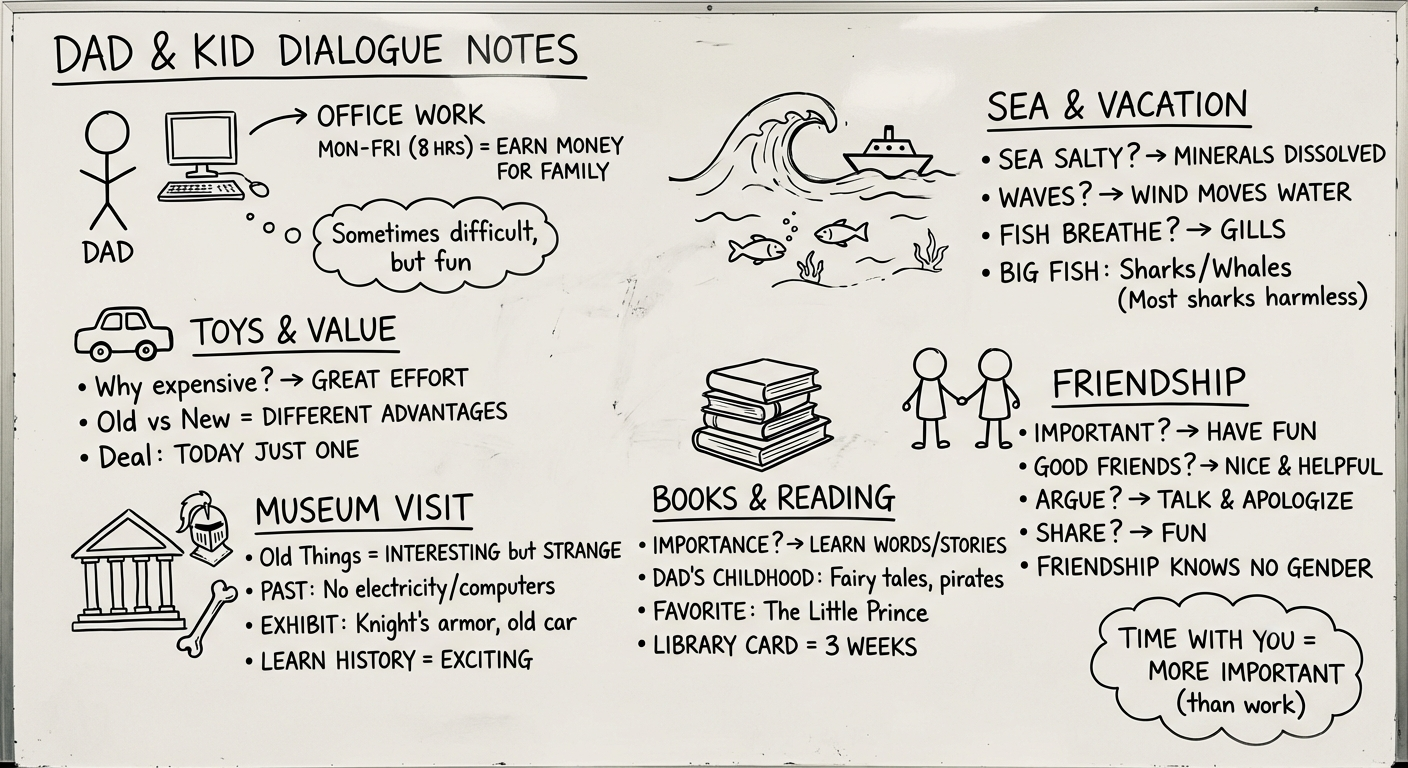 DAD & KID DIALOGUE NOTES
DAD
OFFICE WORK
MON-FRI (8 HRS) = EARN MONEY
FOR FAMILY
Sometimes difficult,
but fun
TOYS & VALUE
• Why expensive? → GREAT EFFORT
• Old vs New = DIFFERENT ADVANTAGES
• Deal: TODAY JUST ONE
MUSEUM VISIT
• Old Things = INTERESTING but STRANGE
• PAST: No electricity/computers
• EXHIBIT: Knight's armor, old car
• LEARN HISTORY = EXCITING
SEA & VACATION
• SEA SALTY? → MINERALS DISSOLVED
• WAVES? → WIND MOVES WATER
• FISH BREATHE? → GILLS
• BIG FISH: Sharks/Whales
(Most sharks harmless)
BOOKS & READING
• IMPORTANCE? → LEARN WORDS/STORIES
• DAD'S CHILDHOOD: Fairy tales, pirates
• FAVORITE: The Little Prince
• LIBRARY CARD = 3 WEEKS
FRIENDSHIP
• IMPORTANT? → HAVE FUN
• GOOD FRIENDS? → NICE & HELPFUL
• ARGUE? → TALK & APOLOGIZE
• SHARE? → FUN
• FRIENDSHIP KNOWS NO GENDER
TIME WITH YOU =
MORE IMPORTANT
(than work)